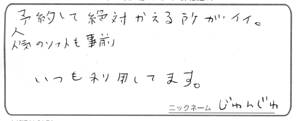 予約して絶対かえる所がイイ。
人気のソフトも事前
いつも利用してます。
ニックネーム じゅんじゅ